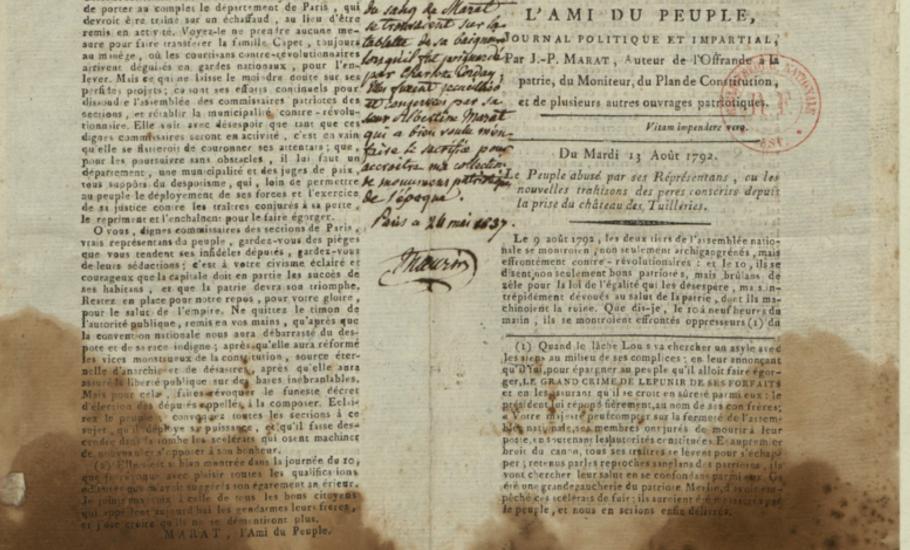 de porter au complet le département de Paris , qui
devroit être traîné sur un échaffaud, au lieu d'être
remis en activité. Voyez-le ne prendre aucune me-
sure pour faire transférer la famille Capet, toujours
au manège, où les courtisans contre-révolutionnaires
arrivent déguisés en gardes nationaux , pour l'en-
lever. Mais ce qui ne laisse le moindre doute sur ses
perfides projets; ce sont ses efforts continuels pour
dissoudre l'assemblée des commissaires patriotes des
sections, et rétablir la municipalité contre-révolu-
tionnaire. Elle voit avec désespoir que tant que ces
dignes commissaires seront en activité , c'est en vain
qu'elle se flatteroit de couronner ses attentats; que ,
pour les poursuivre sans obstacles , il lui faut un
département, une municipalité et des juges de paix ,
tous suppôts du despotisme , qui , loin de permettre
au peuple le déployement de ses forces et l'exercice
de sa justice contre les traîtres conjurés à sa perte ,
le repriment et l'enchaînent pour le faire égorger.
O vous , dignes commissaires des sections de Paris ,
vrais représentans du peuple , gardez-vous des pièges
que vous tendent ses infidèles députés , gardez-vous
de leurs séductions; c'est à votre civisme éclairé et
courageux que la capitale doit en partie les succès de
ses habitans , et que la patrie devra son triomphe.
Restez en place pour notre repos , pour votre gloire ,
pour le salut de l'empire. Ne quittez le timon de
l'autorité publique, remis en vos mains , qu'après que
la convention nationale nous aura débarrassé du des-
pote et de sa race indigne ; après qu'elle aura réformé
les vices monstrueux de la constitution , source éter-
nelle d'anarchie et de désastres , après qu'elle aura
assuré la liberté publique sur des bases inébranlables.
Mais pour cela , faites révoquer le funeste décret
d'élection des députés appellés à la composer. Eclai-
rez le peuple , convoquez toutes les sections à ce
sujet , qu'il déploye sa puissance , et qu'il fasse des-
cendre dans la tombe les scélérats qui osent machiner
de nouveau s'opposer à son bonheur.
montrée dans la journée du 10,
avec plaisir toutes les qualifications
à celle de tous les bons citoyens
aujourd'hui les gendarmes leurs frères ,
et j'ose croire qu'ils ne se démentiront plus.
MARAT , l'Ami du Peuple.
du sang de Marat
se trouvaient sur la
tablette de sa baignoire
lorsqu'il fut
par Charlotte Corday,
et conservés par sa
sœur Albertine Marat
qui a bien voulu m'en
faire le sacrifice pour
accroître ma collection
de monumens patriotiques
de l'époque.
Paris ce 24 mai 1837.
Maurin
L'AMI DU PEUPLE,
JOURNAL POLITIQUE ET IMPARTIAL,
Par J.-P. MARAT, Auteur de l'Offrande à la
patrie, du Moniteur, du Plan de Constitution,
et de plusieurs autres ouvrages patriotiques.
Vitam impendere vero.
Du Mardi 13 Août 1792.
Le Peuple abusé par ses Représentans , ou les
nouvelles trahisons des peres conscrits depuis
la prise du château des Tuilleries.
Le 9 août 1792 , les deux tiers de l'assemblée natio-
nale se montroient , non seulement archigangrénés , mais
effrontément contre - révolutionnaires : et le 10, ils se
disent non seulement bons patriotes , mais brûlans de
zèle pour la loi de l'égalité qui les désespère, mais in-
trépidement dévoués au salut de la patrie , dont ils ma-
chinoient la ruine. Que dis-je , le 10 à neuf heures du
matin , ils se montroient effrontés oppresseurs (1) du
(1) Quand le lâche Louis va chercher un asyle avec
les siens au milieu de ses complices ; en leur annonçant
qu'il fui, pour épargner au peuple qu'il alloit faire égor-
ger, LE GRAND CRIME DE LE PUNIR DE SES FORFAITS
et en les assurant qu'il se croit en sûreté parmi eux : le
président lui répond fièrement, au nom de ses confrères;
« Votre majesté peut compter sur la fermeté de l'assem-
blée nationale, ses membres ont juré de mourir à leur
poste, en soutenant les autorités constituées. Et au premier
bruit du canon, tous ces traîtres se lèvent pour s'échap-
per ; retenus par les reproches sanglans des patriotes , ils
vont chercher leur salut en se confondant parmi eux.
été une grande gaucherie du patriote
pêché ces scélérats de fuir : ils auroient été massacrés par
le peuple, et nous en serions enfin délivrés.